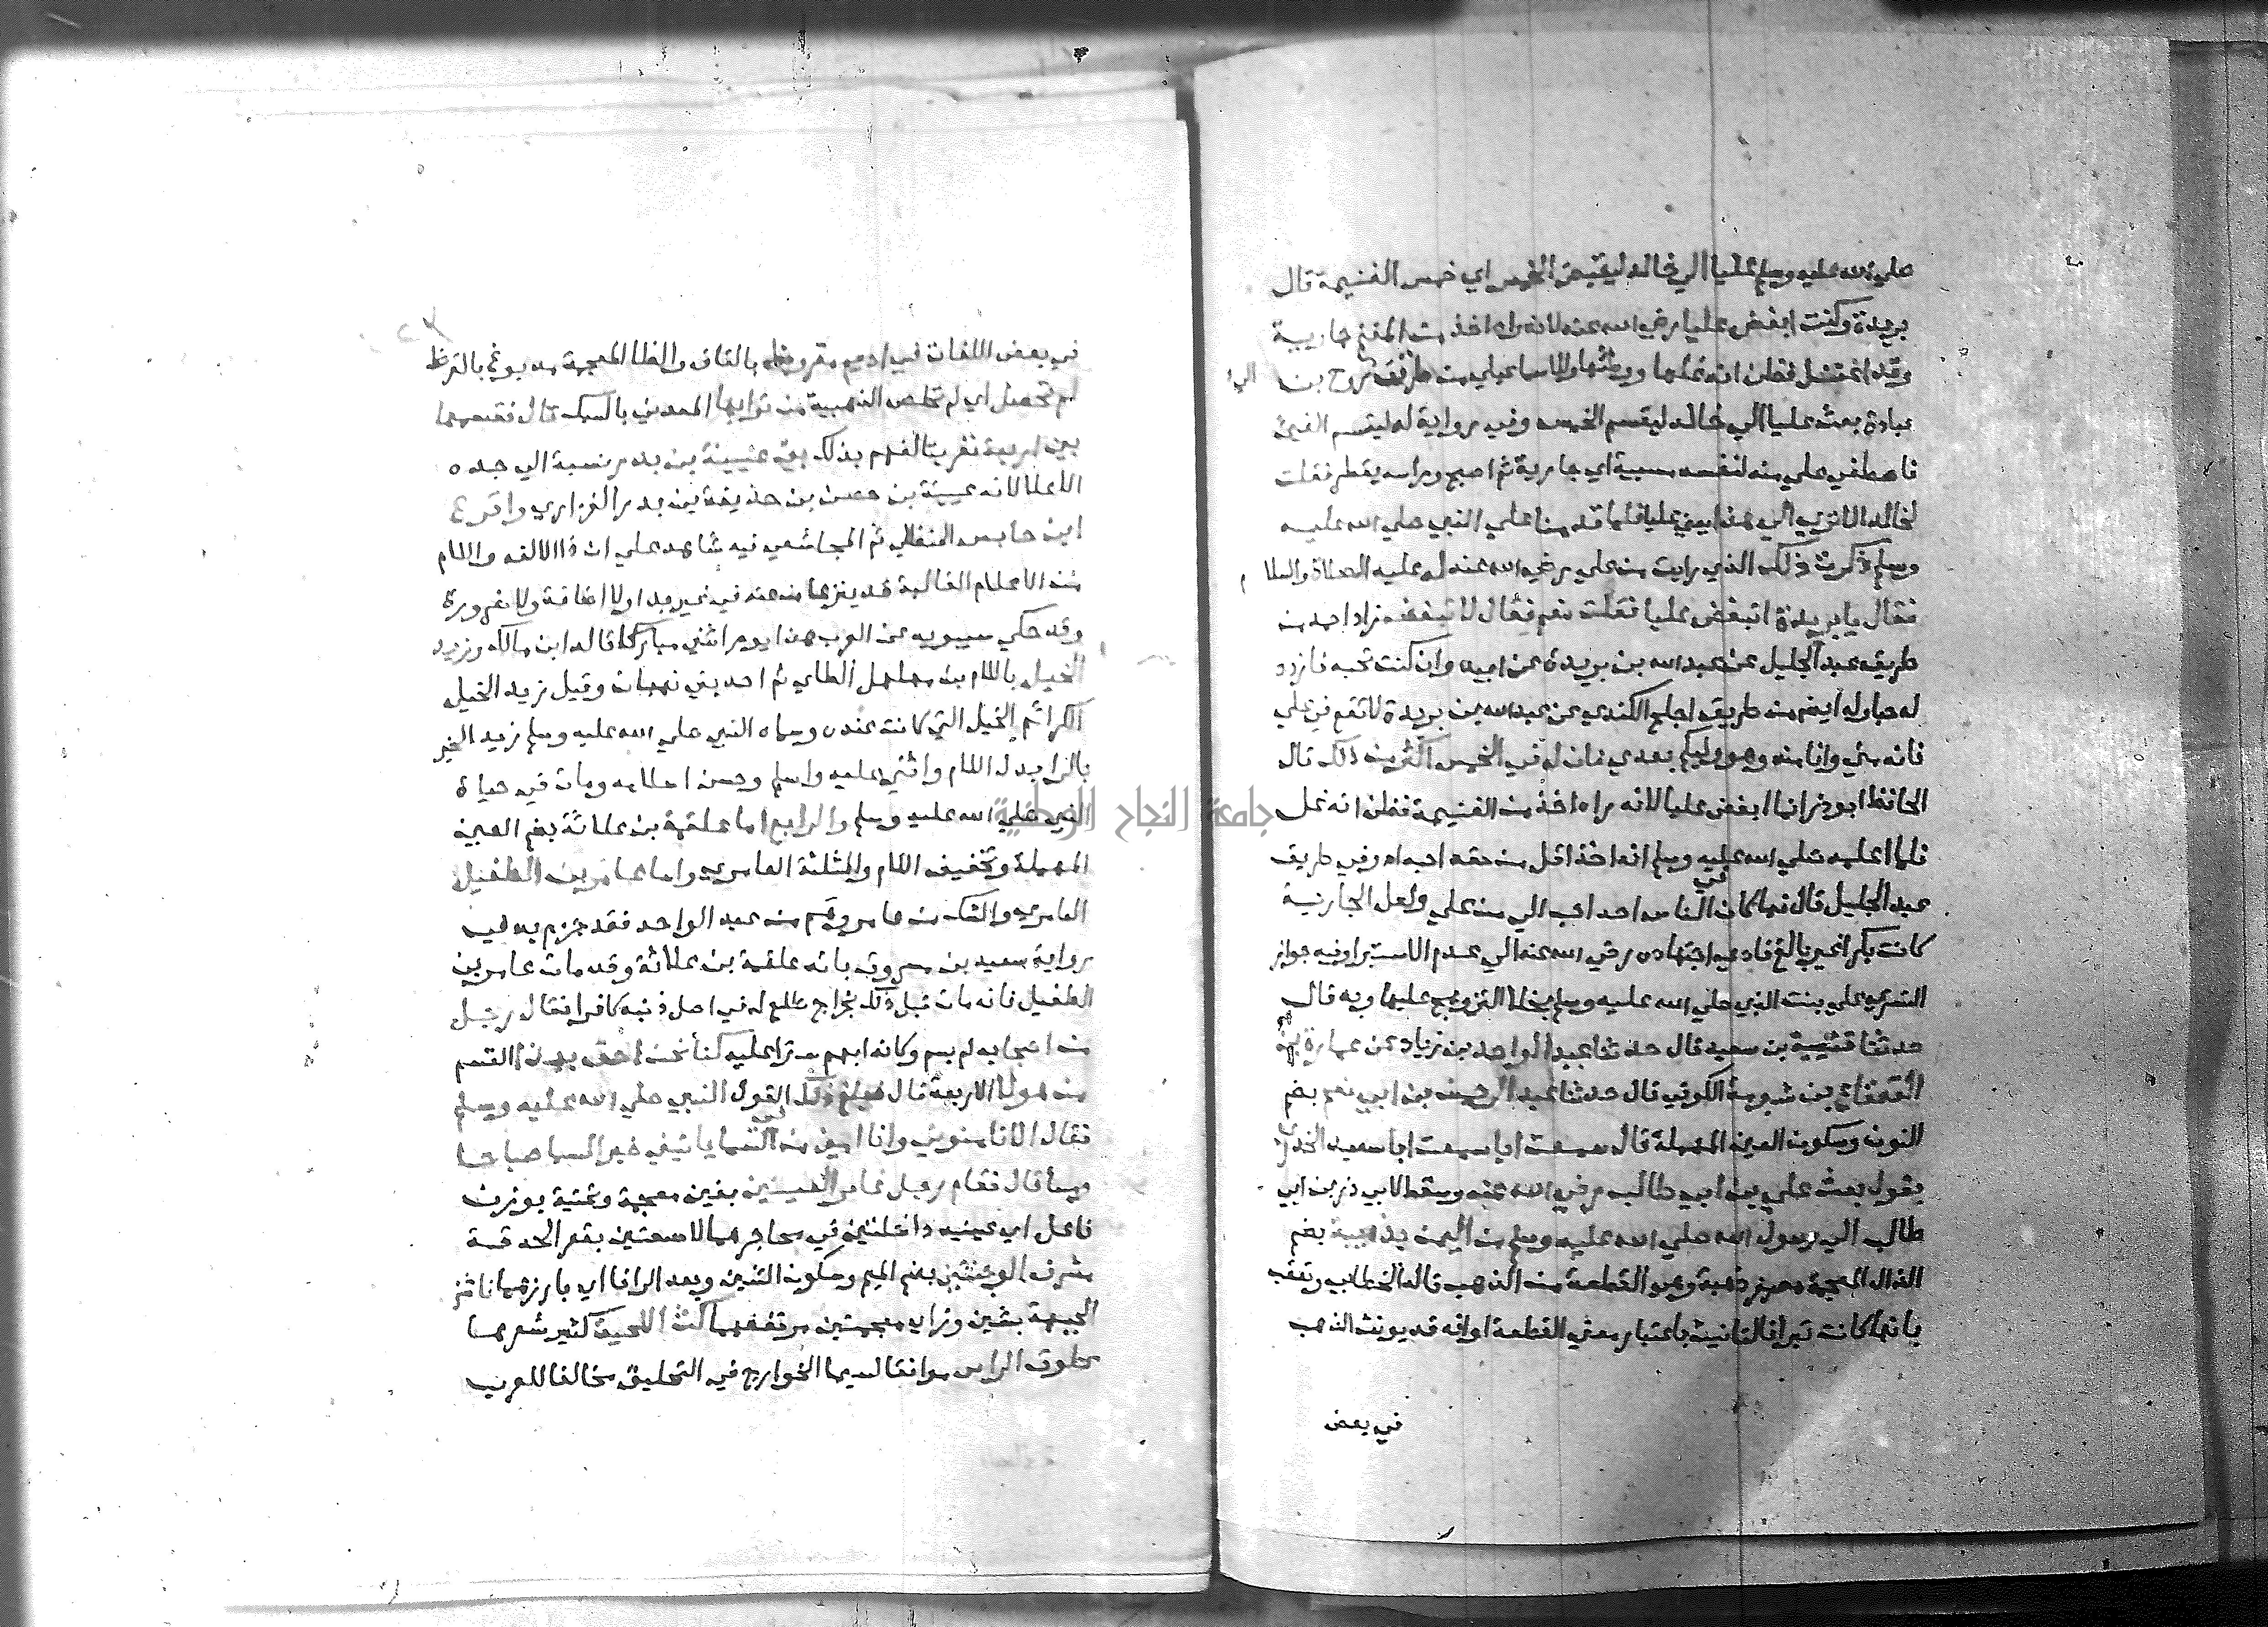 صلى الله عليه وسلم عليا الي خالد ليقبض الخمس اي خمس الغنيمة قال
بريدة وكنت ابغض عليا رضي الله عنه لانه راه اخذ من المغنم جارية
وقد اغتسل فظن انه غلها ووطئها وللاسماعيلي من طرق روح بن
عبادة بعث عليا الي خالد ليقسم الخمس وفي رواية له ليقسم الفئ
فاصطفي علي منه لنفسه سبية اي جارية ثم اصبح وراسه يقطر فقلت
لخالد الا تري الي هذا يعني عليا فلما قدمنا علي النبي صلي الله عليه
وسلم ذكرت ذلك الذي رايت من علي رضي الله عنه له عليه الصلاة والسلام
فقال يا بريدة اتبغض عليا فقلت نعم فقال لا تبغضه زاد احمد من
طريق عبد الجليل عن عبد الله بن بريدة عن ابيه وان كنت تحبه فازدد
له حبا وله ايضم من طريق اجلح الكندي عن عبد الله بن بريدة لا تقع في علي
فانه مني وانا منه وهو وليكم بعدي فان له في الخمس اكثر من ذلك قال
الحافظ ابو ذر انما ابغض عليا لانه راه اخذ من الغنيمة فظن انه غل
فلما اعلمه صلي الله عليه وسلم انه اخذ اقل من حقه احبه اه وفي طريق
عبد الجليل قال فما كان في الناس احد احب الي من علي ولعل الجارية
كانت بكرا غير بالغ فادي اجتهاده رضي الله عنه الي عدم الاستبرا وفيه جواز
التسري علي بنت النبي صلي الله عليه وسلم بخلا التزويج عليها وبه قال
حدثنا قتيبة بن سعيد قال حدثنا عبد الواحد بن زياد عن عمارة بن
القعقاع بن شبرمة الكوفي قال حدثنا عبد الرحمن بن ابي نعم بضم
النون وسكون العين المهملة قال سمعت ابا سمعت ابا سعيد الخدري
يقول بعث علي بن ابي طالب رضي الله عنه وسقط لابي ذر بن ابي
طالب الي رسول الله صلي الله عليه وسلم من اليمن بذهيبة بضم
الذال المعجمة مصغر ذهبة وهي القطعة من الذهب قاله الخطابي وتعقب
بانها كانت تبرا فالتانيث باعتبار معني القطعة اوانه قد يونث الذهب
في بعض
في بعض اللغات في اديم مقروظ بالقاف والظا المعجمة مدبوغ بالقرظ
لم تحصل اي لم تخلص الذهبية من ترابها المعدني بالسبك قال فقسمها
بين اربعة نفر يتالفهم بذلك بين عيينة بن بدر نسبة الي جده
الاعلا لانه عيينة بن حصن بن حذيفة بن بدر الفزاري واقرع
ابن حابس الحنظلي ثم المجاشعي فيه شاهد علي ان ذا الالف واللام
من الاعلام الغالبة قد ينزعان عنه في غير ندا ولا اضافة ولا ضرورة
وقد حكي سيبويه عن العرب هذا يوم اثني مباركا قاله ابن مالك وزيد
الخيل باللام بن مهلهل الطاي ثم احد بني نبهان وقيل زيد الخيل
الكرائم الخيل التي كانت عنده وسماه النبي صلي الله عليه وسلم زيد الخير
بالرا بدل اللام واثني عليه واسلم وحسن اسلامه ومات في حياة
النبي صلي الله عليه وسلم والرابع اما علقمة بن علاثة بضم العين
المهملة وتخفيف اللام والمثلثة العامري واما عامر بن الطفيل
العامري والشك من عامر وهم من عبد الواحد فقد جزم به في
رواية سعيد بن مسروق بانه علقمة بن علاثة وقد مات عامر بن
الطفيل فانه مات قبل ذلك بخراج طلع له في اصل اذنه كافرا فقال رجل
من اصحابه لم يسم وكانه ابهم سترا عليه كنا نحن احق بهذا القسم
من هولا الاربعة قال فبلغ ذلك القول النبي صلي الله عليه وسلم
فقال الا تامنوني وانا امين من في السما ياتيني خبر السما صباحا
ومسا قال فقام رجل غاير العينين بغين معجمة وتحتية بوزن
فاعل اي عينيه داخلتين في محاجرهما لاصقتين بقعر الحدقة
مشرف الوجنتين بضم الميم وسكون الشين وبعد الرا فا اي بارزهما ناشز
الجبهة بشين وزاي معجمتين مرتفعها كث اللحية كثير شعرها
محلوق الراس موافقا لسيما الخوارج في التحليق مخالفا للعرب
جامعة النجاح الوطنية